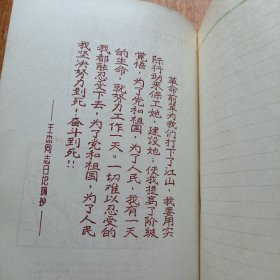 革命前辈为我们打下了江山，我要用实
际行动来保卫她，建设她；使我提高了阶级
觉悟，为了党和祖国，为了人民，我有一天
的生命，就努力工作一天。一切难以忍受的
我都能忍受下去，为了党和祖国，为了人民
我坚决努力到死，奋斗到死!!
——王杰同志日记摘抄——